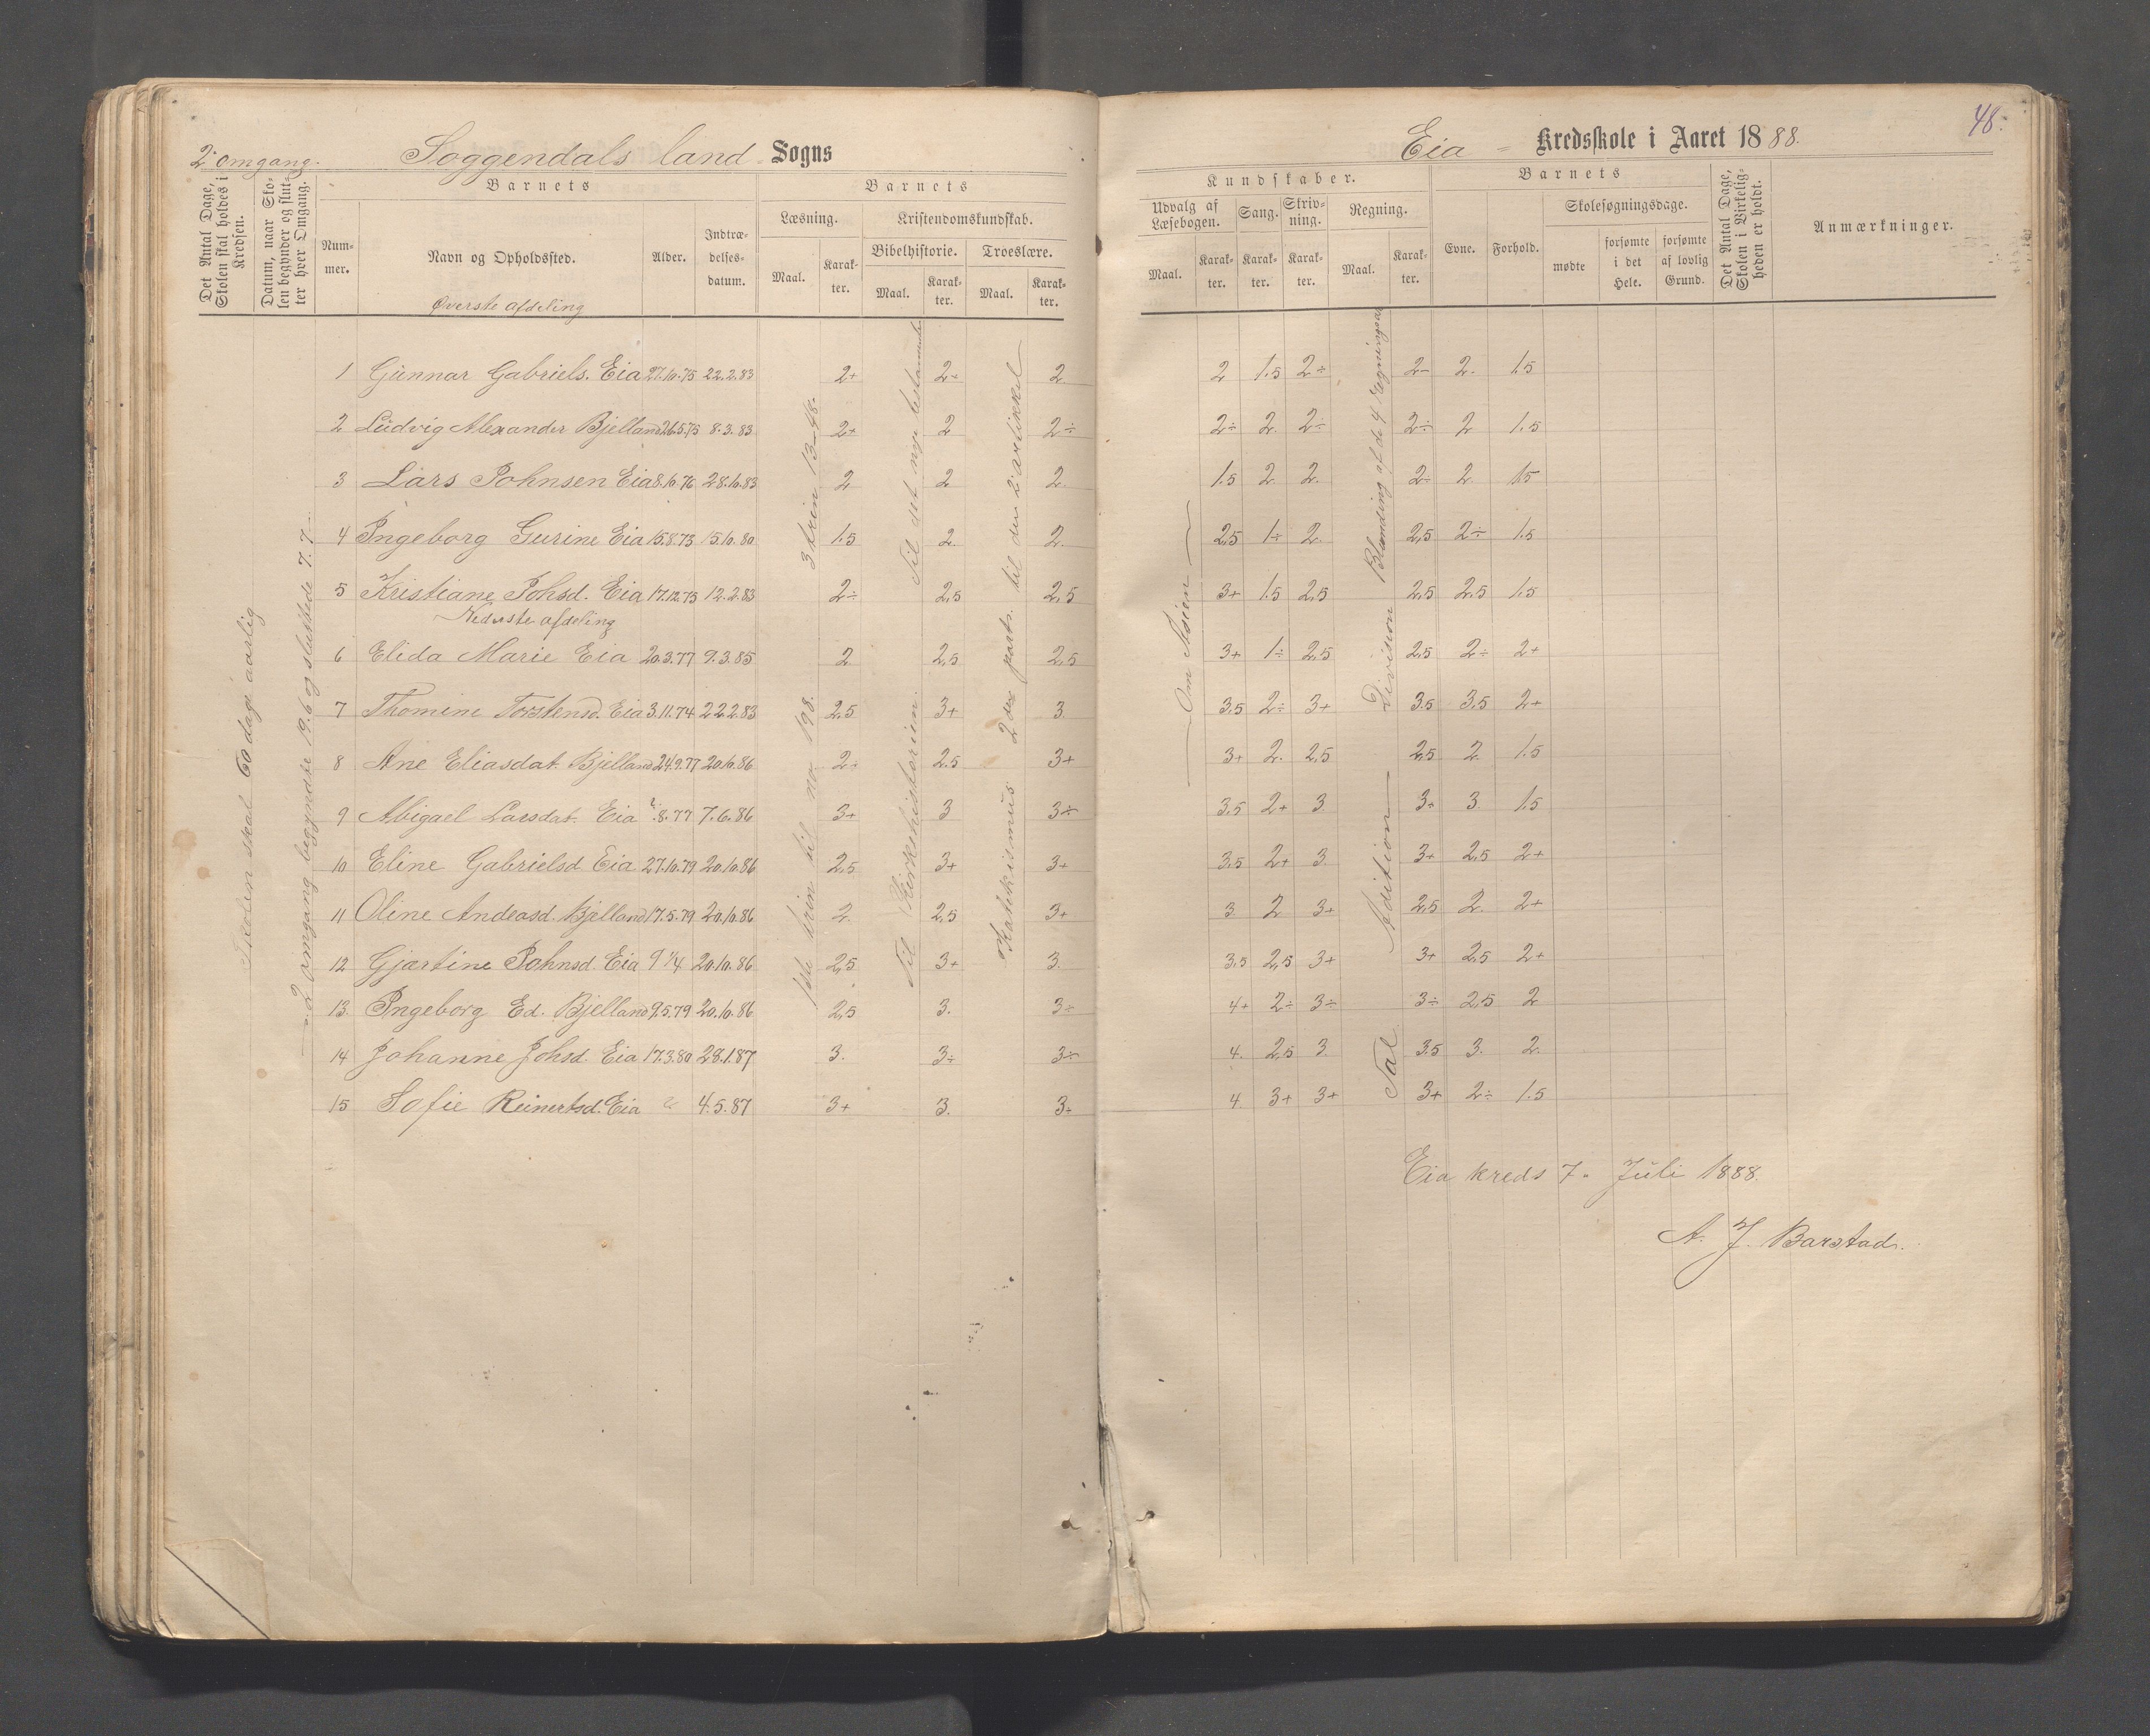 2. omgang.
Soggendals land Sogns
Eia - Kredsskole i Aaret 1888.
48.
Det Antal Dage, Skolen skal holdes i Kredsen.
Datum, naar Skolen begynder og slutter hver Omgang.
Barnets
Nummer.
Navn og Opholdssted.
Alder.
Indtrædelsesdatum.
Barnets
Læsning.
Kristendomskundskab.
Bibelhistorie.
Troeslære.
Maal.
Karakter.
Maal.
Karakter.
Maal.
Karakter.
Kundskaber.
Udvalg af Læsebogen.
Sang.
Skrivning.
Regning.
Maal.
Karakter.
Karakter.
Karakter.
Maal.
Karakter.
Barnets
Evne.
Forhold.
Skolesøgningsdage.
mødte
forsømte i det Hele.
forsømte af lovlig Grund.
Det Antal Dage, Skolen i Virkeligheden er holdt.
Anmærkninger.
Øverste afdeling
1 Gunnar Gabriels. Eia 27.10.75 22.2.83 2+ 2÷ 2. 2 1.5 2÷ 2- 2. 1.5
2 Ludvig Alexander Bjelland 26.5.75 8.3.83 2+ 2 2÷ 2÷ 2. 2÷ 2÷ 2 1.5
3 Lars Johnsen Eia 8.10.76 28.10.83 2 2 2. 1.5 2. 2. 2÷ 2. 1.5
4 Ingeborg Gurine Eia 15.8.73 15.10.80 1.5 2. 2. 2.5 1÷ 2. 2,5 2÷ 1.5
5 Kristiane Johsd. Eia 17.12.75 12.2.83 2÷ 2,5 2,5 3+ 1.5 2,5 2,5 2,5 1.5
Nederste afdeling
6 Elida Marie Eia 20.3.77 9.3.85 2 2,5 2,5 3+ 1÷ 2,5 2,5 2÷ 2+
7 Thomine Torstensd. Eia 3.11.74 22.2.83 2.5 3+ 3. 3.5 2÷ 3+ 3.5 3.5 2+
8 Ane Eliasdat. Bjelland 24.9.77 20.10.86 2÷ 2.5 3+ 3+ 2. 2,5 2,5 2. 1.5
9 Abigael Larsdat. Eia .8.77 7.6.86 3+ 3 3÷ 3.5 2+ 3 3+ 3. 1.5
10 Eline Gabrielsd Eia 27.10.79 20.10.86 2,5 3+ 3+ 3,5 2+ 3. 3+ 2,5 2+
11 Oline Andeasd. Bjelland 17.5.79 20.10.86 2. 2,5 3+ 3. 2 3+ 2,5 2. 2+
12 Gjartine Johnsd. Eia 9 1/4 20.10.86 2,5 3+ 3. 3,5 2,5 3+ 3+ 2,5 2+
13. Ingeborg Ed. Bjelland 9.5.79 20.10.86 2,5 3. 3÷ 4+ 2÷ 3÷ 3÷ 2,5 2
14 Johanne Johsd. Eia 17.3.80 28.1.87 3. 3÷ 3÷ 4. 2,5 3. 3.5 3. 2.
15 Sofie Reinertsd. Eia 4.5.87 3+ 3. 3+ 4. 3+ 3+ 3+ 2÷ 1.5
Skolen skal 60 dage aarlig
2. omgang begyndte 19.6 og sluttede 7.7.
3 trin 13-48.
1ste trin til no 198.
Til det nye testamente
Til Kirkehistorien.
til den 2. artikkel
Katekismus 2 des part.
Om Asien
Blanding af de 4 regningsar
Division
Adition
Tal
Eia kreds 7. Juli 1888.
A. J. Barstad.